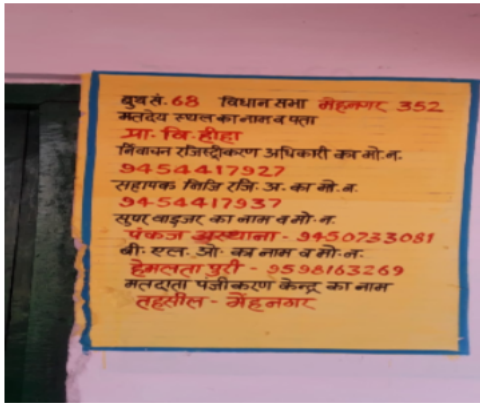 बुथ सं. 68 विधान सभा मेंहनगर 352
मतदेय स्थल का नाम व पता
प्रा. वि. हीहा
निर्वाचन रजिस्ट्रीकरण अधिकारी का मो. न.
9454417927
सहायक निजि रजि. अ. का मो. न.
9454417937
सुपरवाइजर का नाम व मो. न.
पंकज अस्थाना - 9450733081
बी. एल. ओ. का नाम व मो. न.
हेमलता पुरी - 9598163269
मतदाता पंजीकरण केन्द्र का नाम
तहसील - मेंहनगर